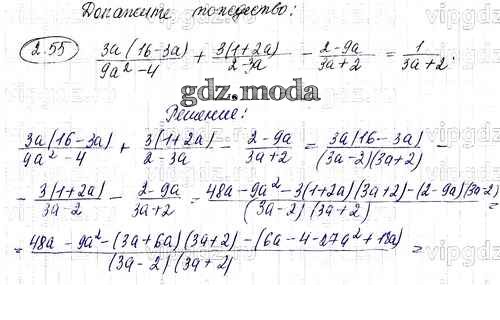 Докажите тождество:
2.55 3a(16-3a)/(9a²-4) + 3(1+2a)/(2-3a) - (2-9a)/(3a+2) = 1/(3a+2).
gdz.moda
Решение:
3a(16-3a)/(9a²-4) + 3(1+2a)/(2-3a) - (2-9a)/(3a+2) = 3a(16-3a)/((3a-2)(3a+2)) -
- 3(1+2a)/(3a-2) - (2-9a)/(3a+2) = (48a-9a²-3(1+2a)(3a+2)-(2-9a)(3a-2))/((3a-2)(3a+2)) =
= (48a-9a²-(3a+6a)(3a+2)-(6a-4-27a²+18a))/((3a-2)(3a+2)) =